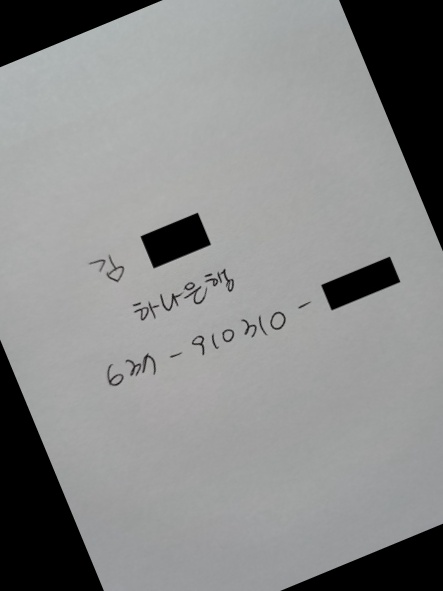 김
하나은행
634 - 910310 -